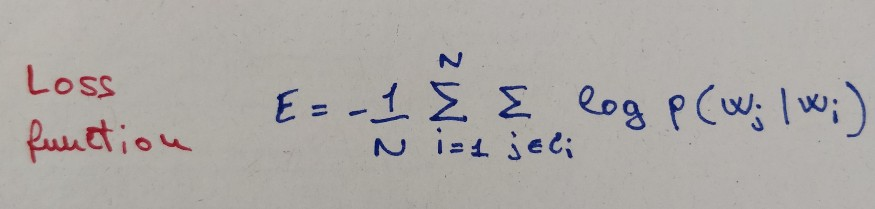 Loss function
E = -1/N Σ_{i=1}^{N} Σ_{j∈C_i} log p(w_j | w_i)